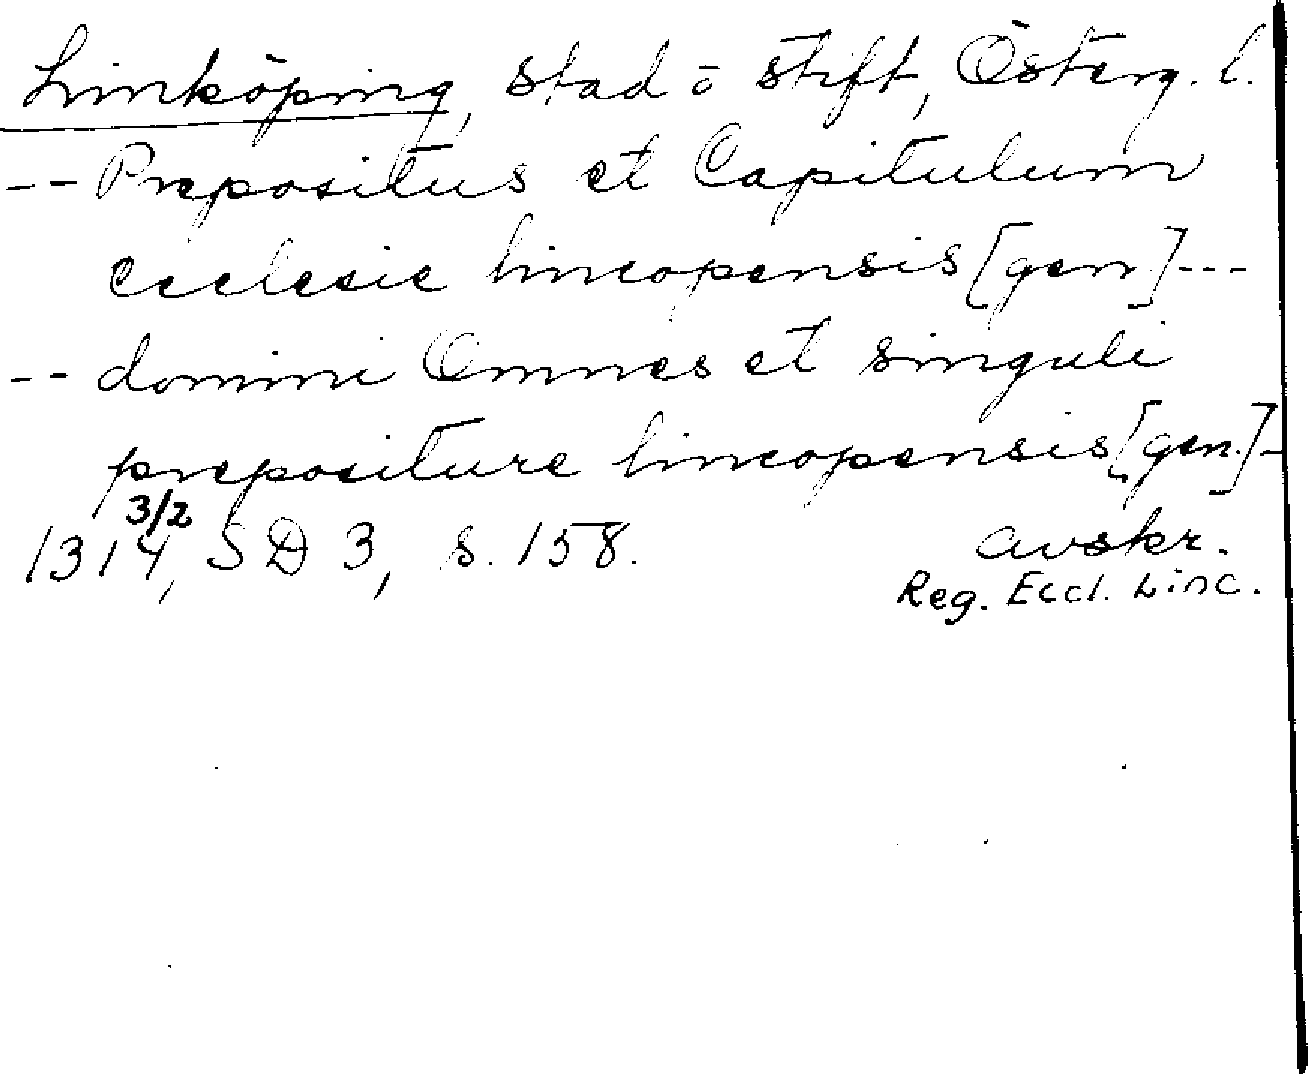 Linköping, stad o stift, Österg. l.
-- Prepositus et Capitulum
ecclesie lincopensis [gen.] ---
-- domini Omnes et singuli
prepositure lincopensis [gen.] -
3/2
1314, SD 3, s. 158. avskr.
Reg. Eccl. Linc.